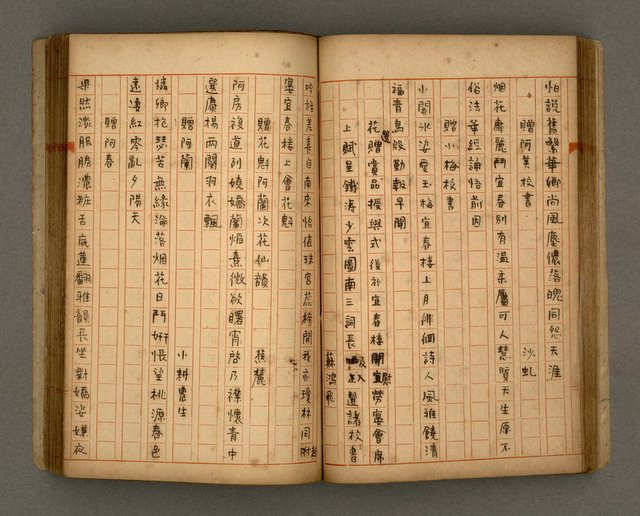 怕說舊繁華卿尚風塵儂落魄同怨天涯
贈阿美校書 沙虬
烟花豪麗鬥宜春則有溫柔屬可人慧質天生原不
俗法華經誦悟前因
贈小梅校書
小閣冰姿愛玉梅宜春樓上月徘徊詩人風雅饒清
福青鳥殷勤報早聞
花選賞品授與式後於宜春樓開宜勞宴會席
上賦呈鐵濤少雲圖南三詞長及入選諸校書
蘇鴻飛
吟旌差喜自南來恰值珠宮蕊榜開我亦瓊林同附
宴宜春樓上會花魁
贈花魁阿蘭次花仙韻 蕉麓
阿房複道列嬌嬈蘭焰熹微欲曙宵啓乃襟懷青中
選屬楊兩開羽衣飄
贈阿蘭 小耕農生
憐卿抱琴苦無緣淪落烟花日鬥妍悵望桃源春色
遠淒紅零亂夕陽天
贈阿春
果然淡服勝濃粧舌底蓮翻雅韻長坐對嬌姿嫌夜